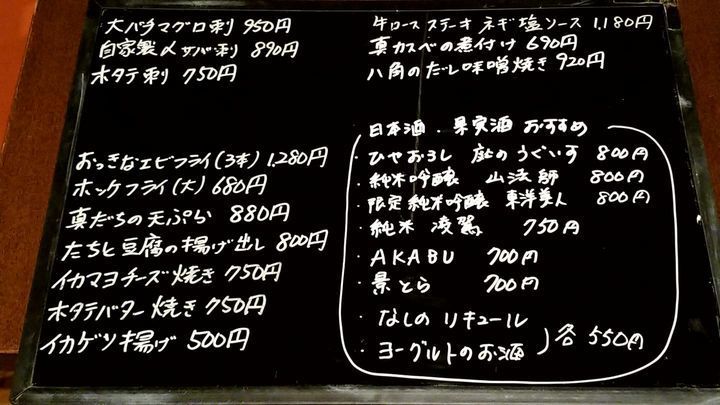 大バチマグロ刺 950円
自家製〆サバ刺 890円
ホタテ刺 750円
おっきなエビフライ(3本) 1.280円
ホッケフライ(大) 680円
真だちの天ぷら 880円
たちと豆腐の揚げ出し 800円
イカマヨチーズ焼き 750円
ホタテバター焼き 750円
イカゲソ揚げ 500円
牛ロースステーキ ネギ塩ソース 1.180円
真カスベの煮付け 690円
八角のだし味噌焼き 920円
日本酒・果実酒 おすすめ
・ひやおろし 庭のうぐいす 800円
・純米吟醸 山法師 800円
・限定純米吟醸 東洋美人 800円
・純米 凌駕 750円
・AKABU 700円
・景とら 700円
・なしのリキュール
・ヨーグルトのお酒 ) 各 550円